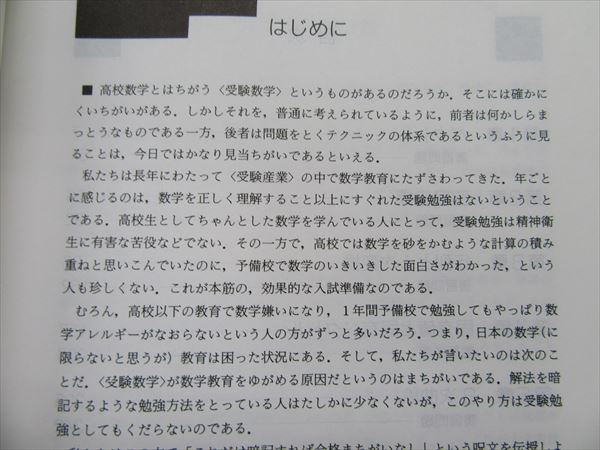 はじめに
■ 高校数学とはちがう〈受験数学〉というものがあるのだろうか．そこには確かに
くいちがいがある．しかしそれを，普通に考えられているように，前者は何かしらま
っとうなものである一方，後者は問題をとくテクニックの体系であるというふうに見
ることは，今日ではかなり見当ちがいであるといえる．
私たちは長年にわたって〈受験産業〉の中で数学教育にたずさわってきた．年ごと
に感じるのは，数学を正しく理解すること以上にすぐれた受験勉強はないということ
である．高校生としてちゃんとした数学を学んでいる人にとって，受験勉強は精神衛
生に有害な苦役などでない．その一方で，高校では数学を砂をかむような計算の積み
重ねと思いこんでいたのに，予備校で数学のいきいきした面白さがわかった，という
人も珍しくない．これが本筋の，効果的な入試準備なのである．
むろん，高校以下の教育で数学嫌いになり，１年間予備校で勉強してもやっぱり数
学アレルギーがなおらないという人の方がずっと多いだろう．つまり，日本の数学(に
限らないと思うが）教育は困った状況にある．そして，私たちが言いたいのは次のこ
とだ．〈受験数学〉が数学教育をゆがめる原因だというのはまちがいである．解法を暗
記するような勉強方法をとっている人はたしかに少なくないが，このやり方は受験勉
強としてもくだらないのである．